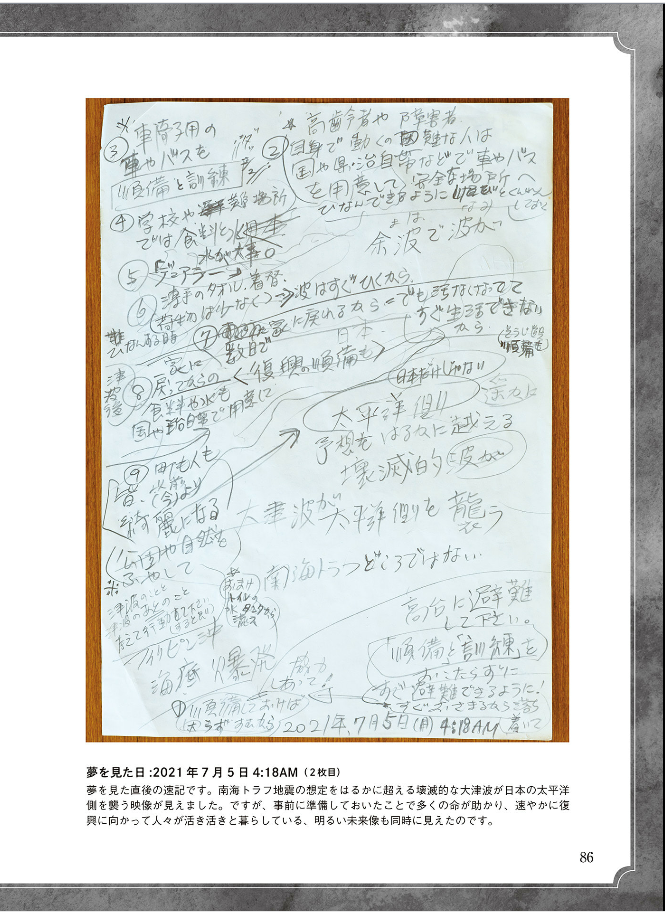 ③ 車椅子用の
車やバスを
準備と訓練
② 高齢者や障害者
自身で動くの困難な人は
国や県・治自帯などで車やバス
を用意して 安全な場所へ
ひなんできるように
④ 学校や避難場所
では食料と水
水が大事。
余波で波が
⑤
⑥ 薄手のタオル、着替、
荷物は少なく
波はすぐひくから
ひなんする時
⑦
数日で
家に戻れるから でも活
すぐ生活できない
から
準備を
日本
津波後
⑧ 家に
戻ってからの
食料や水も
国や で用意して
復興の準備も
日本だけじゃない
太平洋側
予想をはるかに越える
壊滅的な波が
⑨ 町も人も
皆、 (今)より
綺麗になる
公園や自然を
ふやして
大津波が太平洋側を襲う
南海トラフどころではない
おまけ
トイレの
水タンクから
流え
津波のこと
津波のあとのこと
フィリピン沖
海底 爆発
高台に避難
して下さい。
「準備」と「訓練」を
おこたらずに
すぐ避難できるように!
すぐおさまるから
落ちついて
① 準備しておけば
必らず
2021年、7月5日(月) 4:18AM
夢を見た日:2021年7月5日4:18AM(2枚目)
夢を見た直後の速記です。南海トラフ地震の想定をはるかに超える壊滅的な大津波が日本の太平洋
側を襲う映像が見えました。ですが、事前に準備しておいたことで多くの命が助かり、速やかに復
興に向かって人々が活き活きと暮らしている、明るい未来像も同時に見えたのです。
86